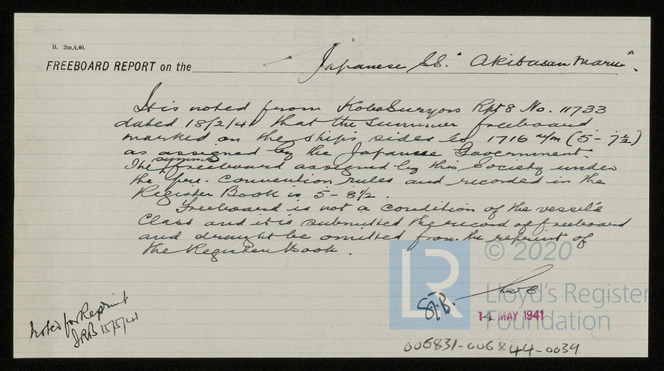 D. 2m,4,40.
FREEBOARD REPORT on the Japanese S.S. "Akibasan Maru".
It is noted from Kobe Surveyors Rpt 8 No. 11733
dated 18/2/41 that the summer freeboard
marked on the ship's sides is 1716 m/m (5 - 7½)
as assigned by the Japanese Government.
The summer freeboard assigned by this Society under
the pre. Convention rules and recorded in the
Register Book is 5 - 8½.
Freeboard is not a condition of the vessel's
Class and it is submitted the record of freeboard
and draught be omitted from the reprint of
the Register Book.
14 MAY 1941
Noted for Reprint
15/5/41
LR
© 2020
Lloyd's Register
Foundation
006831-006844-0034